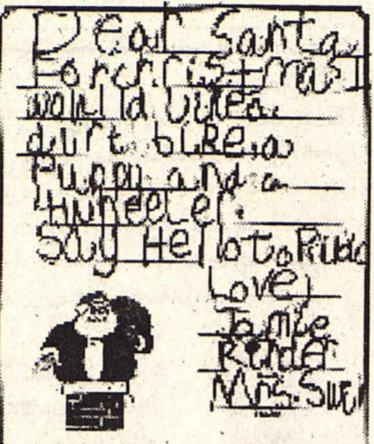 Dear Santa
For christmas I
would like a
dirt bike, a
Puppy and a
4wheeler.
Say Hello to
Love,
Jamie
Render
Mrs.